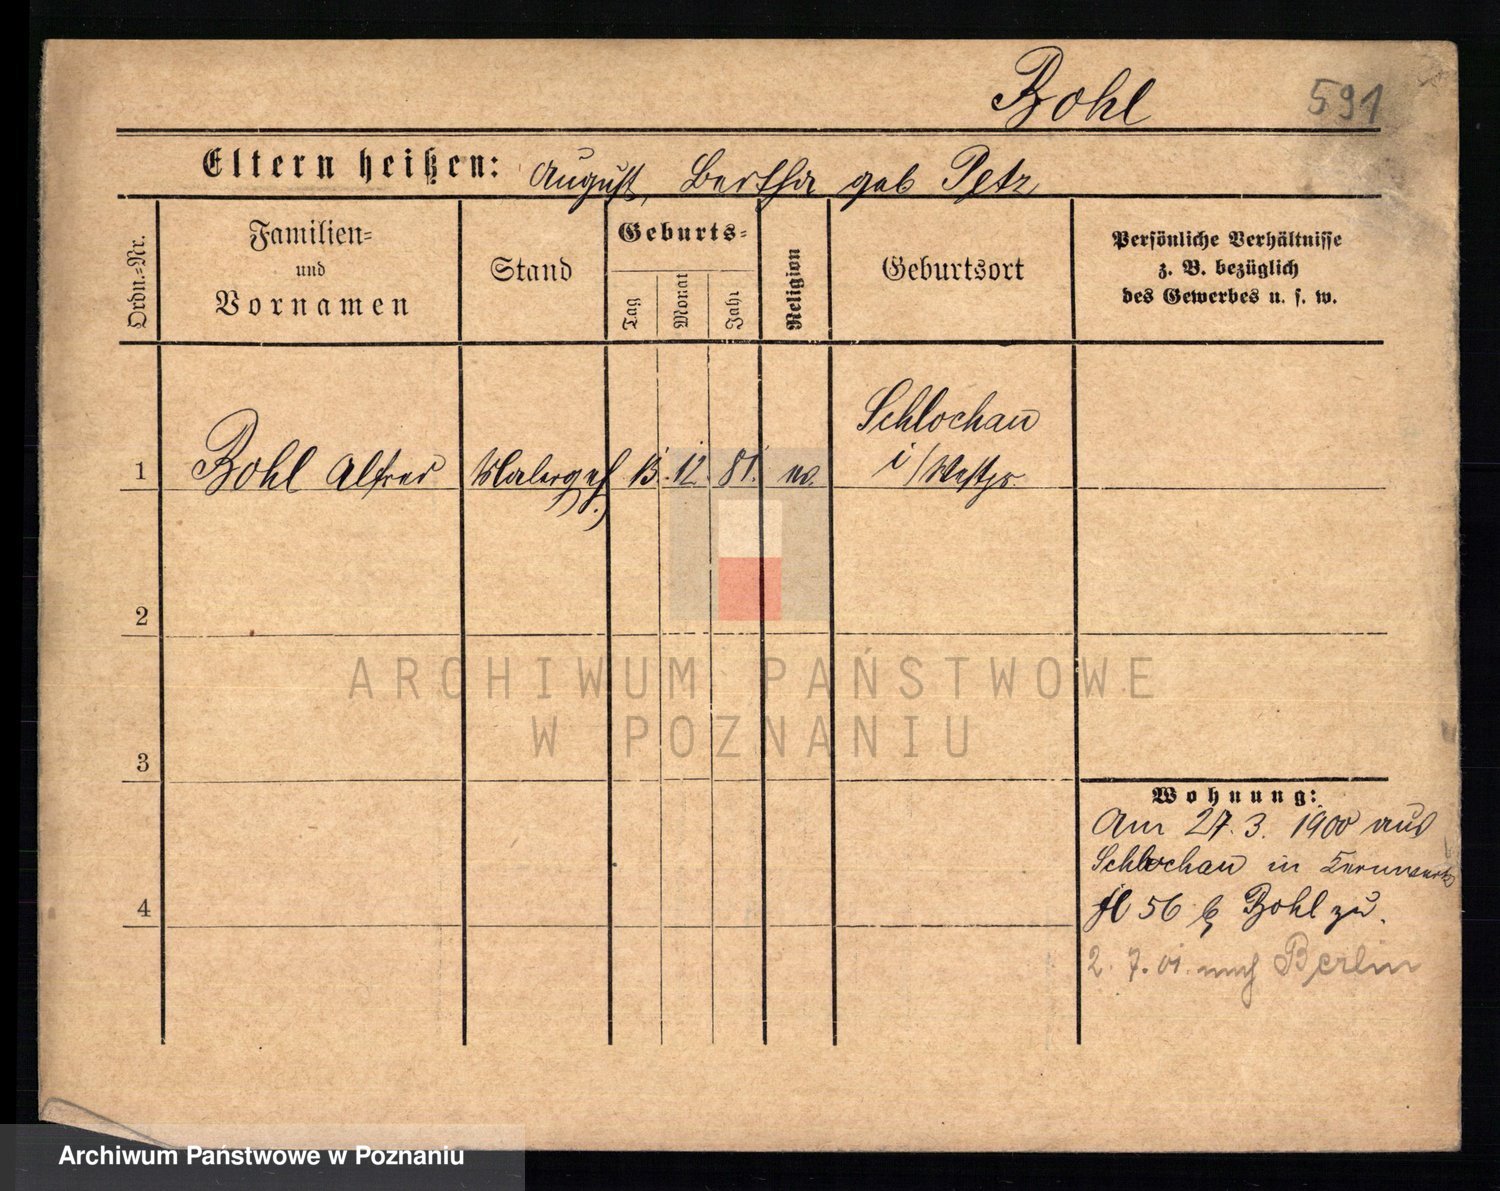 Bohl 591
Eltern heißen: August, Bertha geb Petz
Ordn.=Nr.
Familien=
und
Vornamen
Stand
Geburts=
Tag
Monat
Jahr
Religion
Geburtsort
Persönliche Verhältnisse
z. B. bezüglich
des Gewerbes u. s. w.
Schlochau
1 Bohl Alfred Malergeh. 13. 12. 81. ev. i/Westpr.
2
ARCHIWUM PAŃSTWOWE
W POZNANIU
3
Wohnung:
Am 27. 3. 1900 aus
Schlochau in
4
56 b Bohl zu.
2. 7. 01. nach Berlin
Archiwum Państwowe w Poznaniu